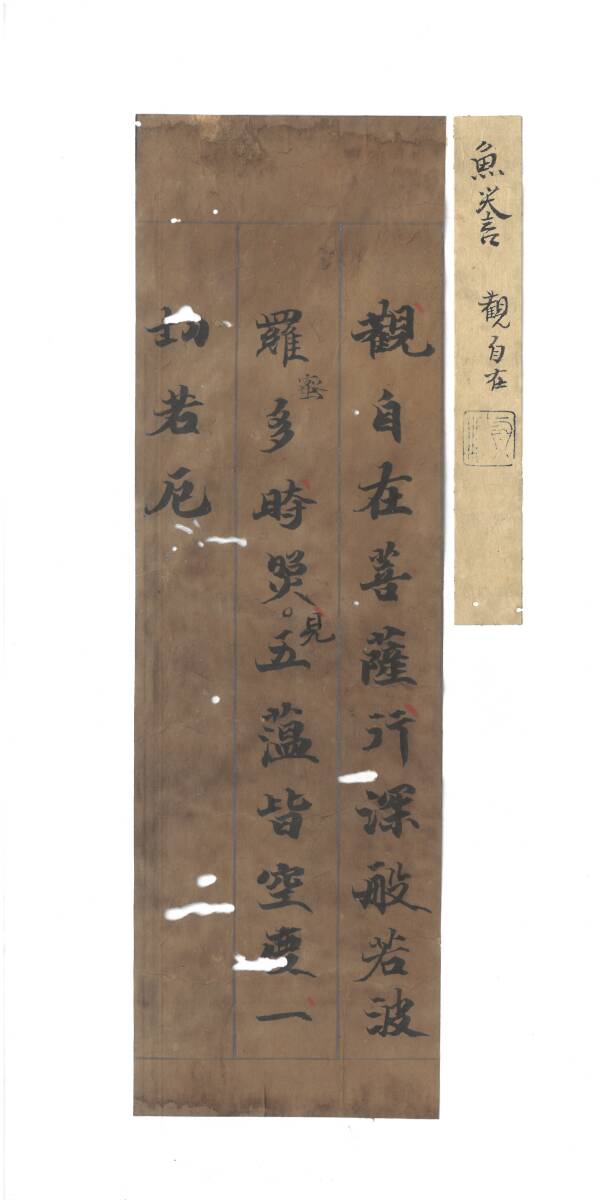 魚養 觀自在
觀自在菩薩行深般若波
羅蜜多時照見五蘊皆空度一
切若厄